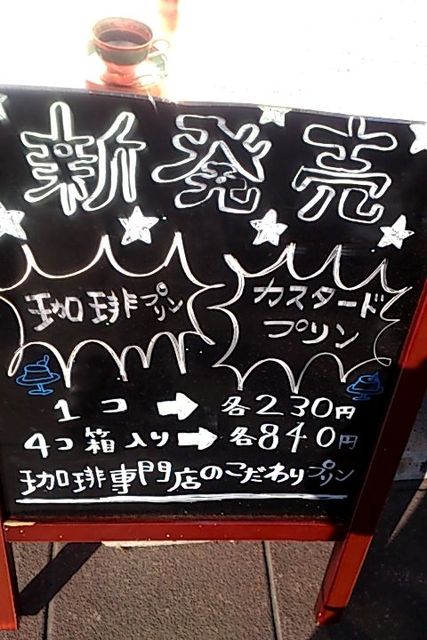 新発売
珈琲プリン
カスタード
プリン
1コ ➡ 各230円
4コ箱入り ➡ 各840円
珈琲専門店のこだわりプリン